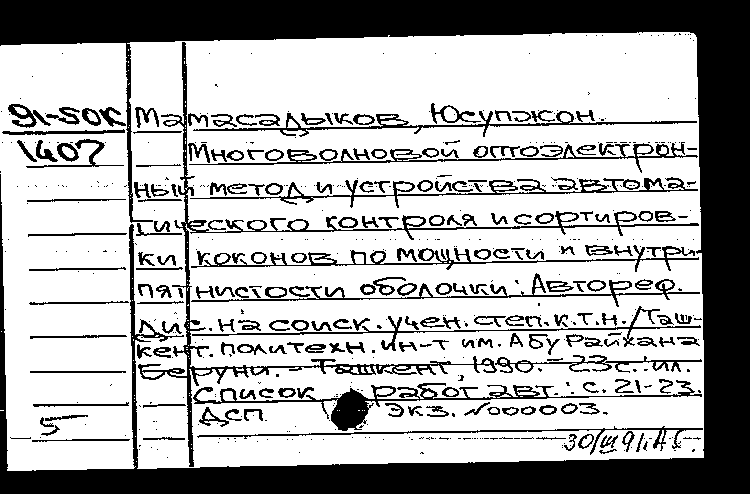 91-50К Мамасадыков, Юсупжон.
1407 Многоволновой оптоэлектрон-
ный метод и устройства автома-
тического контроля и сортиров-
ки коконов по мощности и внутри-
пятнистости оболочки: Автореф.
дис. на соиск. учен. степ. к.т.н./Таш-
кент. политехн. ин-т им. Абу Райхана
Беруни. - Ташкент, 1990. - 23 с.: ил.
Список работ авт.: с. 21-23.
5 ДСП Экз. №000003.
30/III 91г.